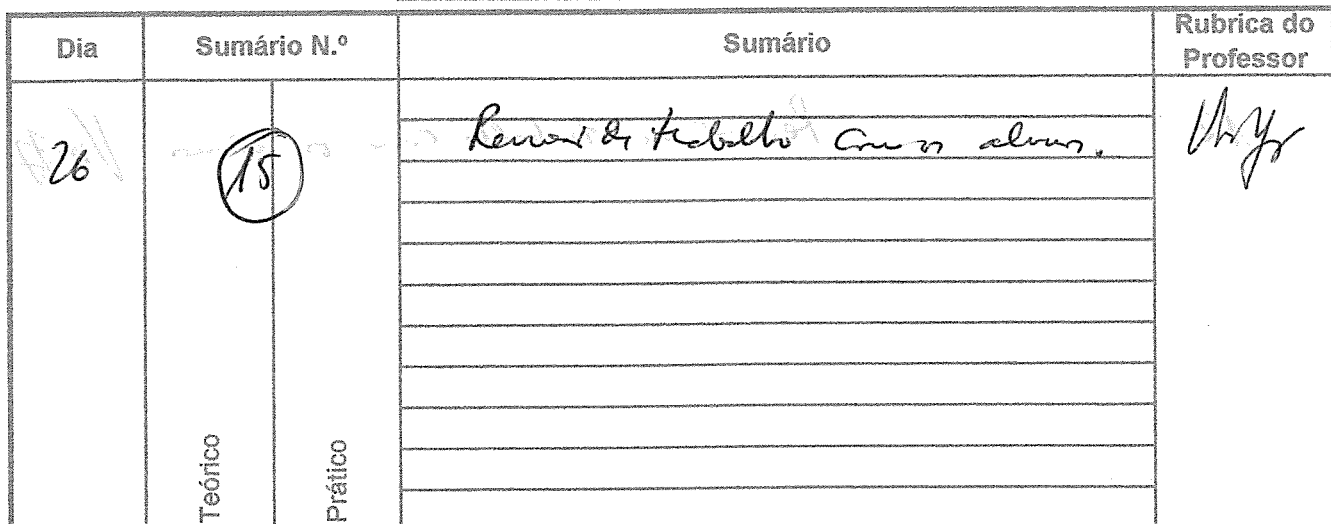 Dia Sumário N.º Sumário Rubrica do Professor
26 15 Reunião de trabalho com os alunos.
Teórico Prático